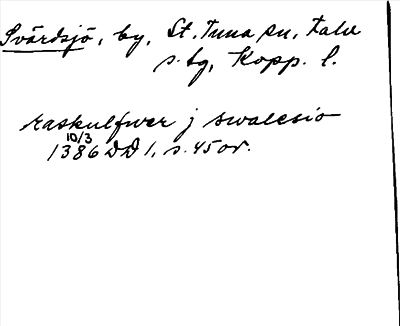 Svärdsjö, by, St. Tuna sn, Falu
s. tg, Kopp. l.
raskulfwer j swalesio
10/3
1386 DD 1, s. 45 or.